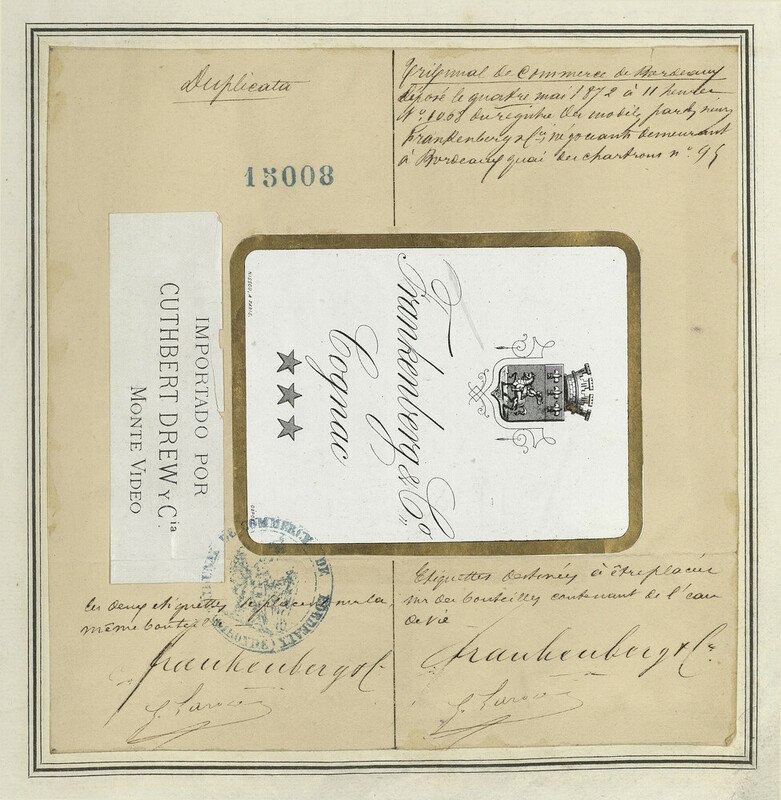 Duplicata
15008
Tribunal de Commerce de Bordeaux
déposé le quatre mai 1872 à 11 heures
du régistre des modèles, par les sieurs
Frankenberg & Cie, négociants demeurant
à Bordeaux quai des chartrons n° 95
IMPORTADO POR
CUTHBERT DREW Y Cia
MONTE VIDEO
Frankenberg & Co
Cognac
COMMERCE DE BORDEAUX
Les deux étiquettes se placent sur la
même bouteille
Frankenberg & C
Etiquettes destinées à être placées
sur des bouteilles contenant de l'eau
de vie
Frankenberg & Cie